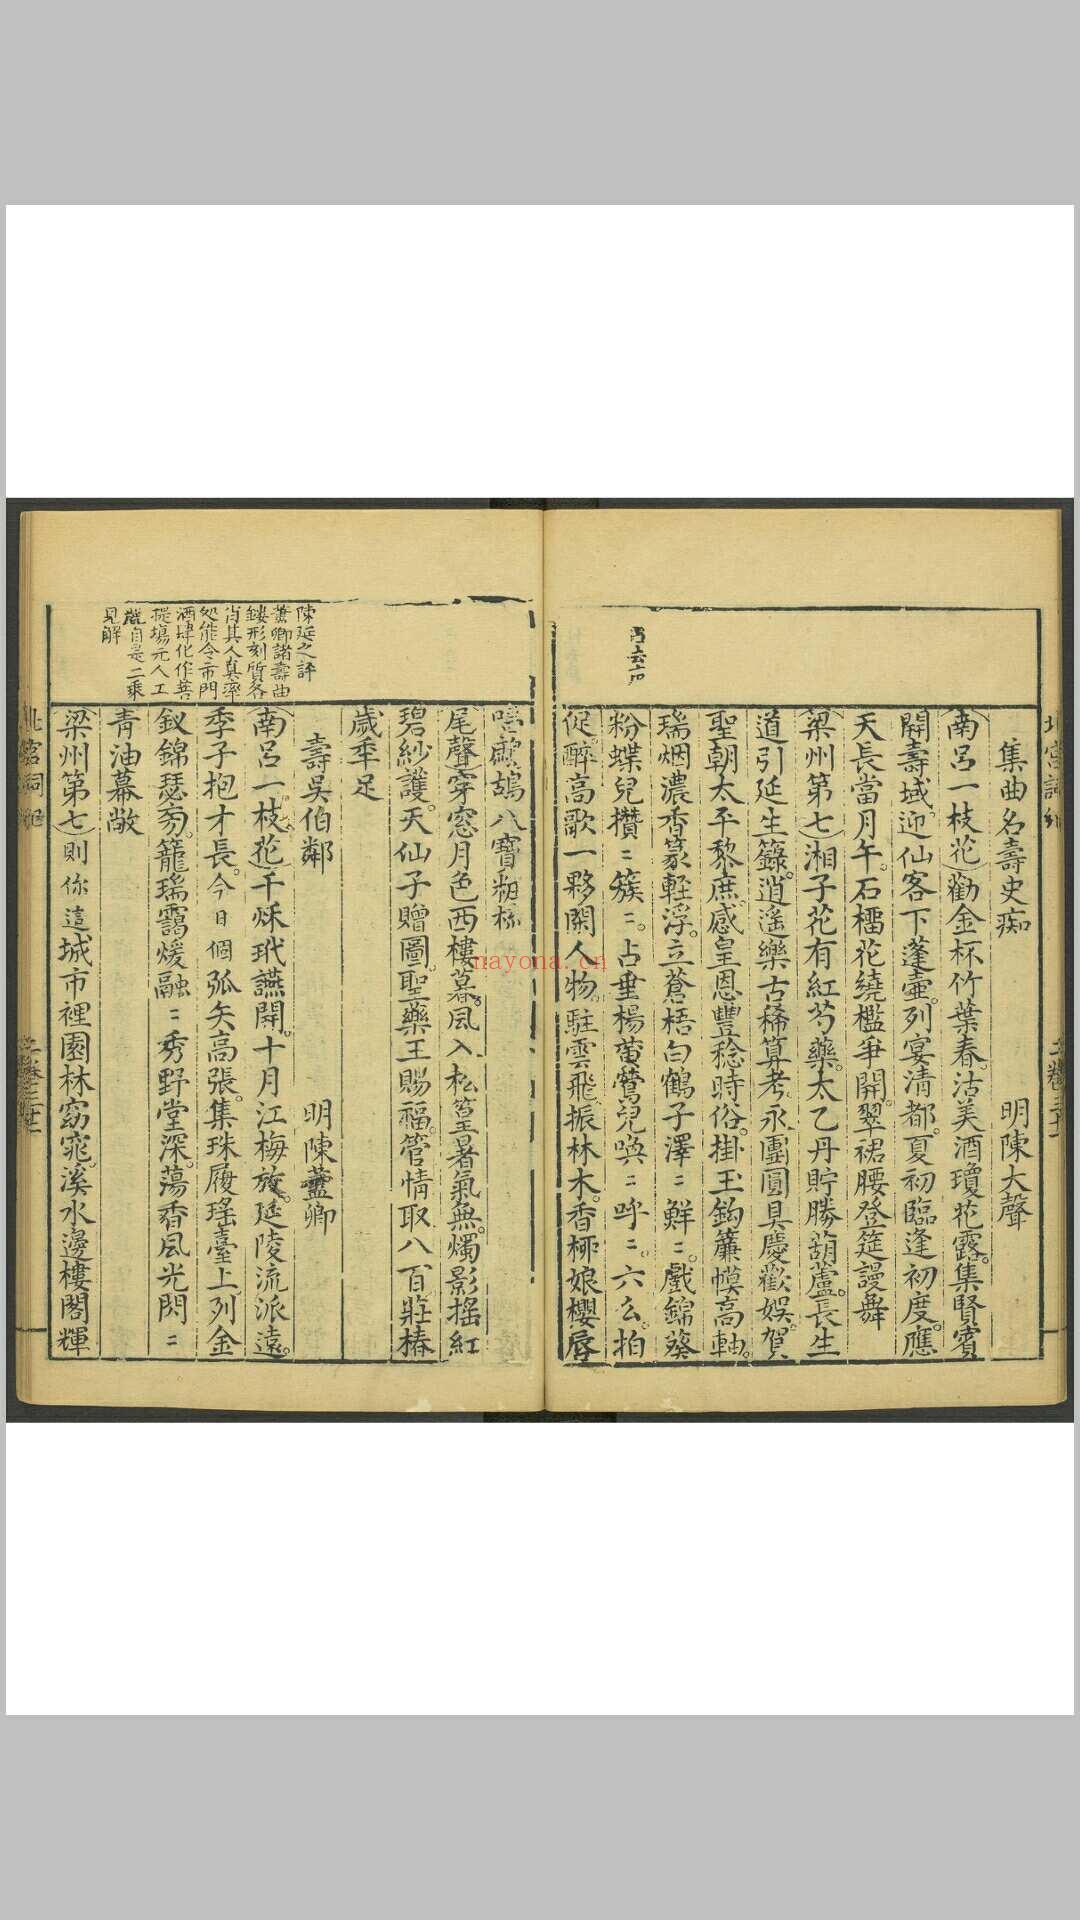 集曲名壽史痴　明陳大聲
南呂一枝花)勸金杯竹葉春。沽美酒瓊花露。集賢賓
開壽域。迎仙客下蓬壺。列宴清都。夏初臨逢初度。應
天長當月午。石橊花繞檻爭開。翠裙腰登筵謾舞
梁州第七)湘子花有紅芍藥。太乙丹貯勝葫蘆。長生
道引延生籙。逍遙樂古稀算考。永團圓具慶歡娛。賀
聖朝太平黎庶。感皇恩豐稔時俗。掛玉鈎簾幙高軸。
瑞烟濃香篆輕浮。立蒼梧白鶴子澤〻鮮〻。戲錦葵
粉蝶兒攢〻簇〻。占垂楊黃鶯兒喚〻呼〻。六么。拍
促。醉高歌一夥閑人物。駐雲飛。振林木。香柳娘櫻唇
鷓鴣八寶粧梳
尾聲)穿窓月色西樓暮。風入松篁暑氣無。燭影搖紅
碧紗護。天仙子贈圖。聖藥王賜福。管情取八百莊椿
歲季足
壽吳伯鄰　明陳藎卿
南呂一枝花)千秌玳讌開。十月江梅放。延陵流派遠。
季子抱才長。今日個弧矢高張。集珠履瑤臺上列金
釵錦瑟旁。籠瑞靄煖融〻秀野堂深。蕩香風光閃〻
青油幕敞
梁州第七)則你這城市裡園林窈窕。溪水邊樓閣輝
陳延之評
藎卿諸壽曲
鏤形刻質各
肖其人真率
処能令市門
酒肆化作菩
提塲元人工
麗自是二乘
見解
nayona.cn